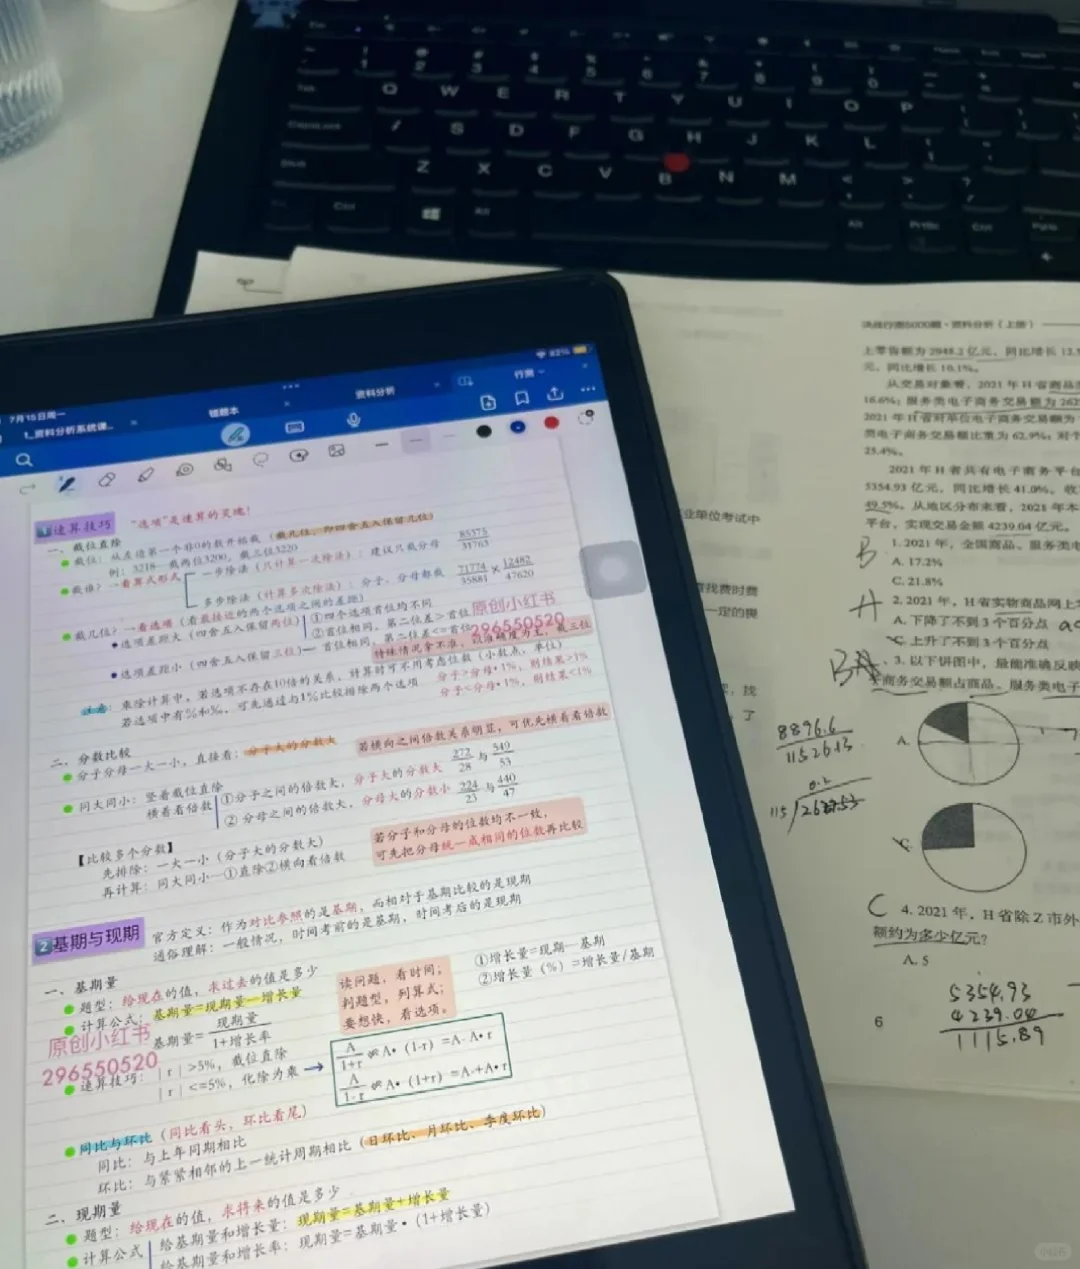 Q W E R T Y U I O P
S D F G H J K L
Z X C V B N M
82%
7月15日周一
1_资料分析系统课...
错题本
资料分析
行测
1 速算技巧 "选项"是速算的灵魂!
一、截位直除
截位: 从左边第一个非0的数开始截 (截几位, 即四舍五入保留几位)
例: 3218—截两位3200, 截三位3220
截谁? 一看算式形式
一步除法 (只计算一次除法): 建议只截分母 85375/31763
多步除法 (计算多次除法): 分子、分母都截 71774/35881 × 12482/47620
截几位? 一看选项 (看最接近的两个选项之间的差距)
选项差距大 (四舍五入保留两位) ①四个选项首位均不同
②首位相同, 第二位差>首位
选项差距小 (四舍五入保留三位)— 首位相同, 第二位差<=首位
原创小红书
296550520
特殊情况拿不准, 以准确度为主, 截三位
注意: 乘除计算中, 若选项不存在10倍的关系, 计算时可不用考虑位数 (小数点、单位)
若选项中有%和‰, 可先通过与1%比较排除两个选项
分子>分母•1%, 则结果>1%
分子<分母•1%, 则结果<1%
二、分数比较
分子分母一大一小, 直接看: 分子大的分数大
若横向之间倍数关系明显, 可优先横着看倍数
同大同小: 竖着截位直除
横着看倍数 ①分子之间的倍数大, 分子大的分数大 272/28 与 549/53
② 分母之间的倍数大, 分母大的分数小 224/23 与 440/47
【比较多个分数】
先排除: 一大一小 (分子大的分数大)
再计算: 同大同小—①直除②横向看倍数
若分子和分母的位数均不一致,
可先把分母统一成相同的位数再比较
2 基期与现期
官方定义: 作为对比参照的是基期, 而相对于基期比较的是现期
通俗理解: 一般情况, 时间考前的是基期, 时间考后的是现期
一、基期量
题型: 给现在的值, 求过去的值是多少
计算公式: 基期量=现期量—增长量
基期量= 现期量/1+增长率
原创小红书
296550520
速算技巧: |r| >5%, 截位直除
|r| <=5%, 化除为乘 →
读问题, 看时间;
判题型, 列算式;
要想快, 看选项。
①增长量=现期—基期
②增长量 (%) =增长量/基期
A/1+r ≈ A• (1-r) =A-A•r
A/1-r ≈ A• (1+r) =A+A•r
同比与环比 (同比看头, 环比看尾)
同比: 与上年同期相比
环比: 与紧紧相邻的上一统计周期相比 (日环比、月环比、季度环比)
二、现期量
题型: 给现在的值, 求将来的值是多少
计算公式 给基期量和增长量: 现期量=基期量+增长量
给基期量和增长率: 现期量=基期量• (1+增长量)
决战行测5000题·资料分析(上册)
上零售额为2948.2亿元, 同比增长12.5
元, 同比增长10.1%。
从交易对象看, 2021年H省商品
16.6%; 服务类电子商务交易额为262
2021年H省对单位电子商务交易额为
类电子商务交易额比重为62.9%; 对个
25.4%。
2021年H省共有电子商务平台
5354.93亿元, 同比增长41.0%。
49.5%。从地区分布来看, 2021年本
平台, 实现交易金额4239.04亿元。
B 1. 2021年, 全国商品、服务类电
A. 17.2%
C. 21.8%
A 2. 2021年, H省实物商品网上
A. 下降了不到3个百分点
C. 上升了不到3个百分点
3. 以下饼图中, 最能准确反映
商务交易额占商品、服务类电子
A.
C.
8896.6
11526.13
0.2
C 4. 2021年, H省除Z市外
额约为多少亿元?
A. 5
5354.93
4239.04
1115.89
6
业单位考试中
查找费时费
一定的畏
找
了